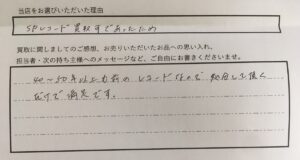 当店をお選びいただいた理由
SPレコード買取すであったため
買取に関しましてのご感想、お売りいただいたお品への思い入れ、
担当者・次の持ち主様へのメッセージなど、ご自由にお書きくださいませ。
40～50年以上も前のレコードなので処分して頂く
だけで満足です。